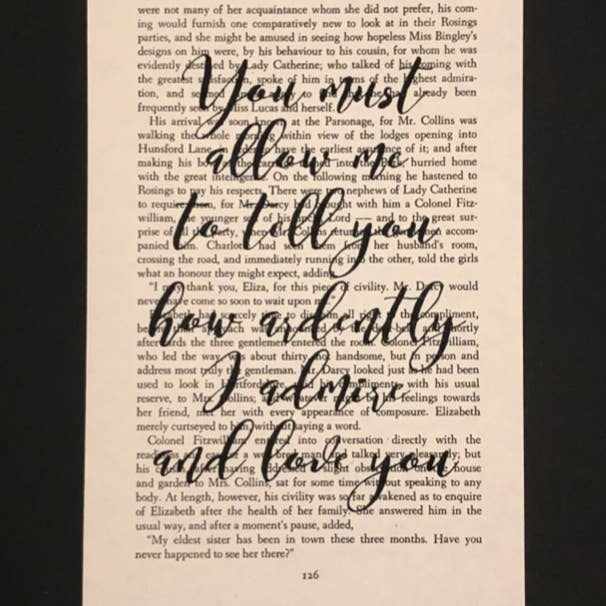 You must
allow me
to tell you
how ardently
I admire
and love you
were not many of her acquaintance whom she did not prefer, his com-
ing would furnish one comparatively new to look at in their Rosings
parties, and she might be amused in seeing how hopeless Miss Bingley's
designs on him were, by his behaviour to his cousin, for whom he was
evidently by Lady Catherine; who talked of his coming with
the greatest spoke of him in of the highest admira-
tion, and to already been
frequently seen by Miss Lucas and herself.
His arrival was soon at the Parsonage, for Mr. Collins was
walking the whole within view of the lodges opening into
Hunsford Lane, the earliest of it; and after
making his into the hurried home
with the great intelligence. On the following morning he hastened to
Rosings to pay his respects. There were nephews of Lady Catherine
to require for Mr. Darcy had with him a Colonel Fitz-
william, the younger son of his Lord and to the great sur-
prise of all the party, when Mr. Collins the accom-
panied him. Charlotte had seen them from her husband's room,
crossing the road, and immediately running into the other, told the girls
what an honour they might expect, adding,
"I thank you, Eliza, for this piece of civility. Mr. Darcy would
never have come so soon to wait upon
had to all to the compliment,
was by shortly
afterwards the three gentlemen entered the room. Colonel Fitzwilliam,
who led the way, was about thirty, not handsome, but in person and
address most truly the gentleman. Mr. Darcy looked just as he had been
used to look in compliments, with his usual
reserve, to Mrs. Collins; feelings towards
her friend, met her with every appearance of composure. Elizabeth
merely curtseyed to him without saying a word.
Colonel Fitzwilliam into conversation directly with the
of a and talked very but
his having a slight on house
and garden to Mrs. Collins, sat for some time without speaking to any
body. At length, however, his civility was so far awakened as to enquire
of Elizabeth after the health of her family. She answered him in the
usual way, and after a moment's pause, added,
"My eldest sister has been in town these three months. Have you
never happened to see her there?"
126